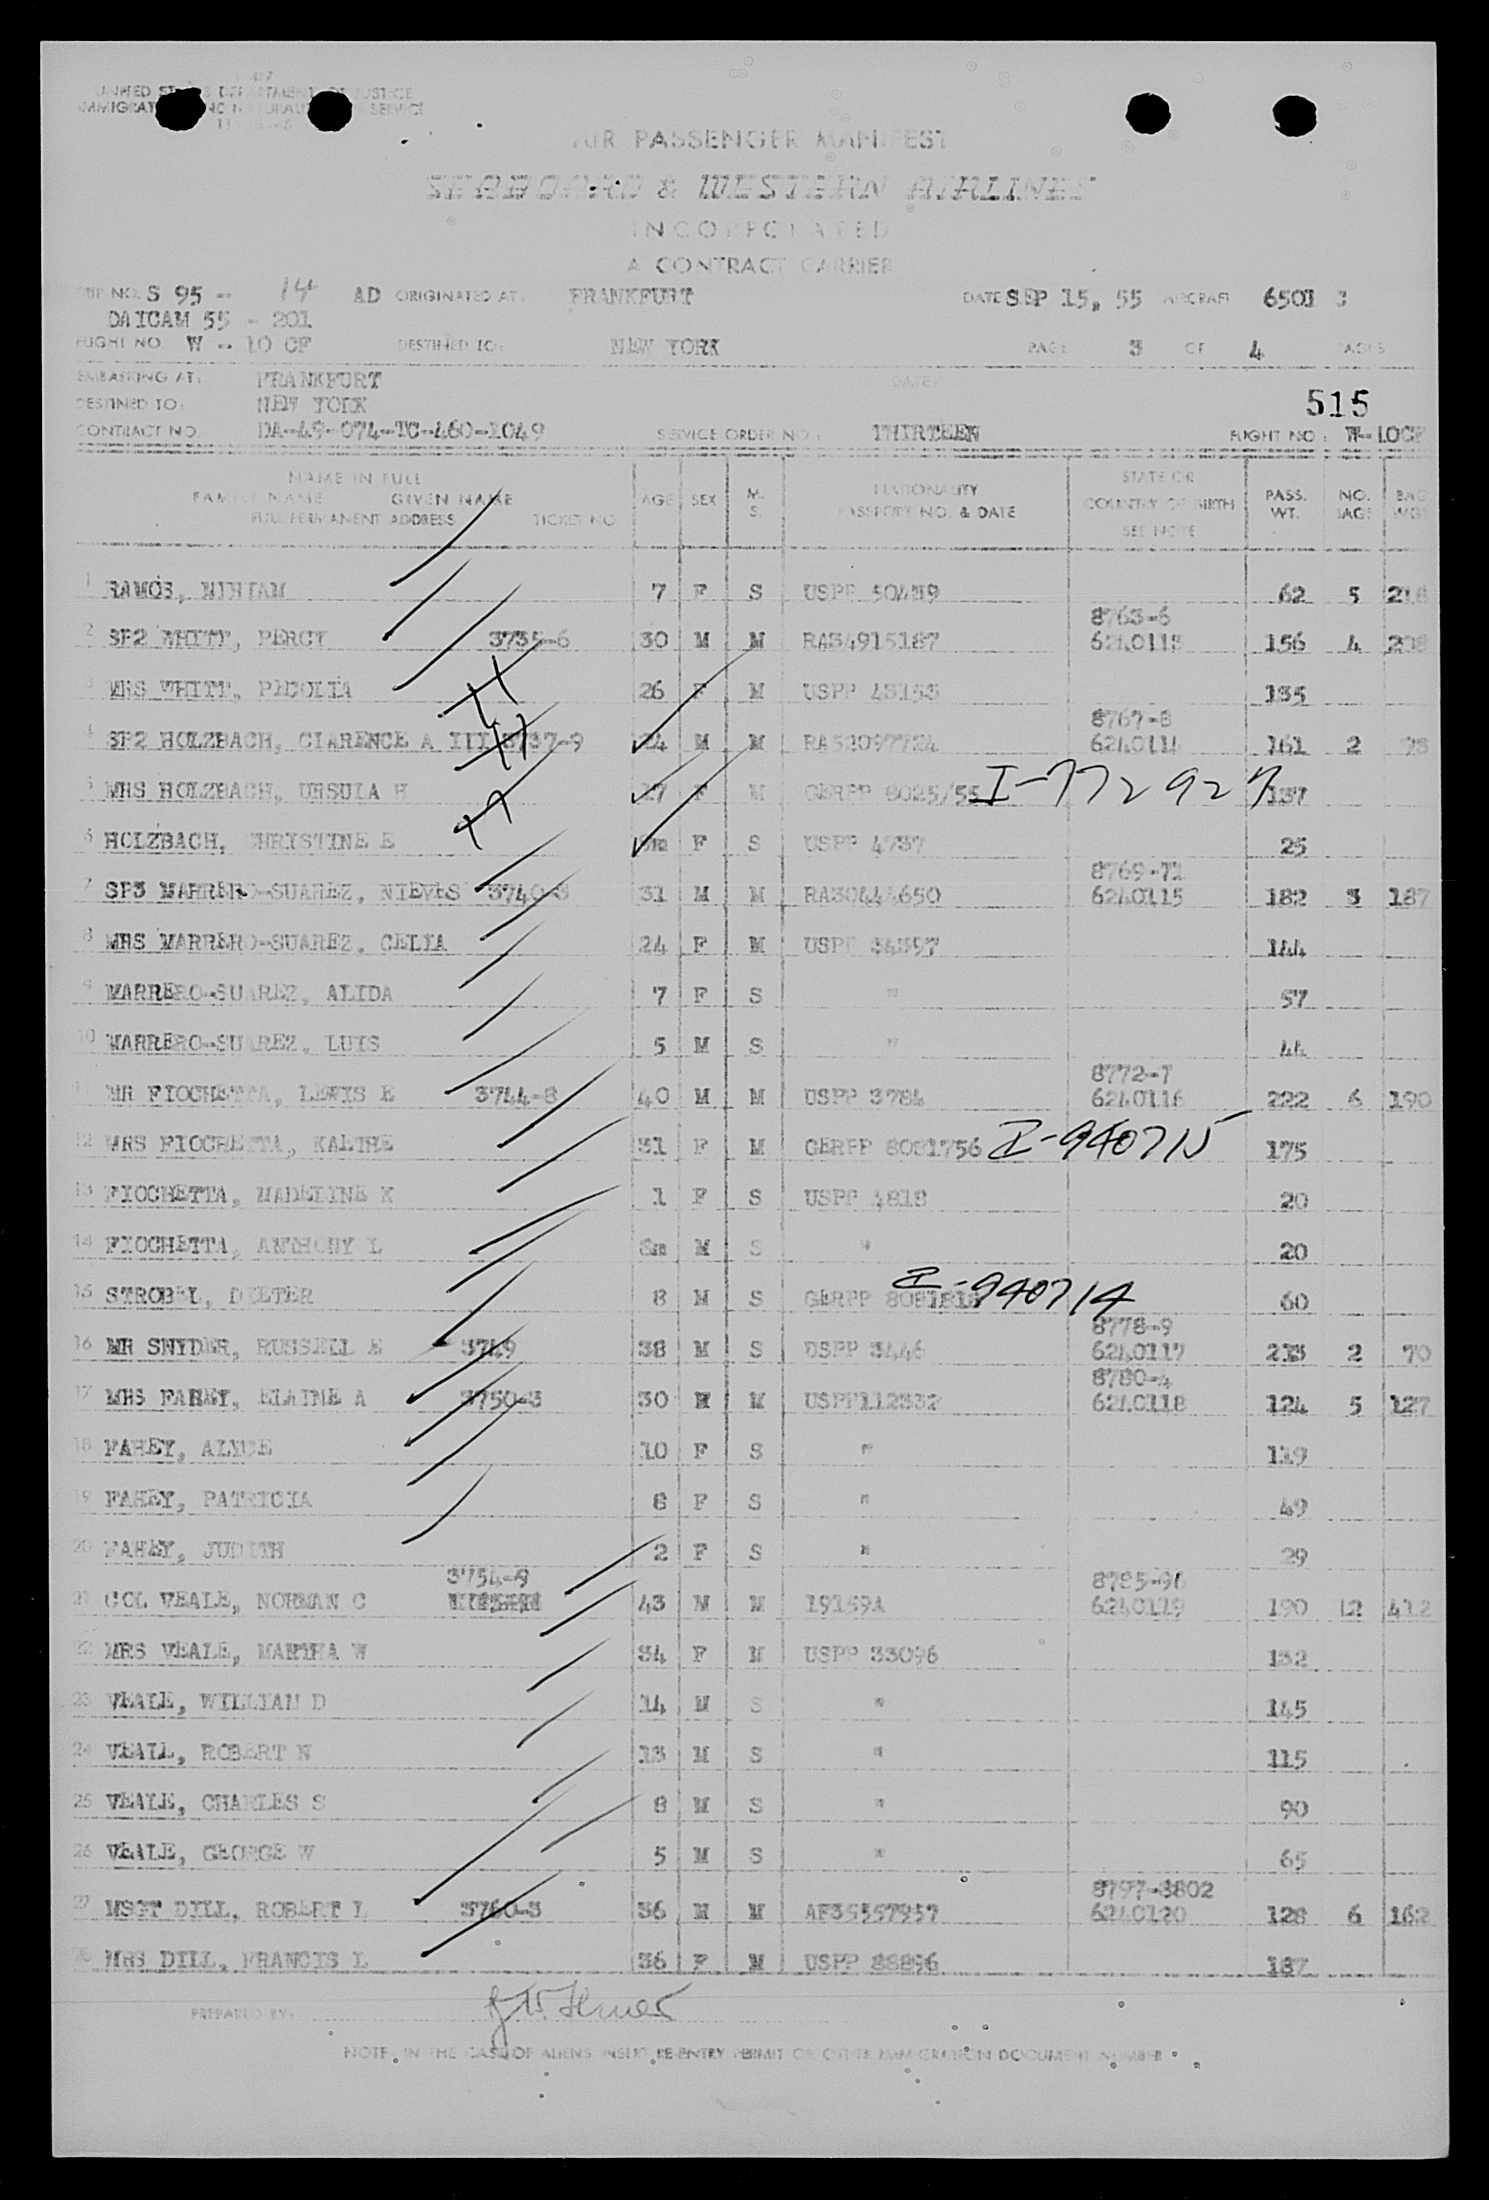 UNITED STATES DEPARTMENT OF JUSTICE
IMMIGRATION AND NATURALIZATION SERVICE
AIR PASSENGER MANIFEST
SEABOARD & WESTERN AIRLINES
INCORPORATED
A CONTRACT CARRIER
TRIP NO. S 95 - 14 AD ORIGINATED AT: FRANKFURT DATE SEP 15, 55 AIRCRAFT 6501
DAICAM 55 - 201
FLIGHT NO. W - 10 OF DESTINED TO: NEW YORK PAGE 3 OF 4 PAGES
EMBARKING AT: FRANKFURT DATE:
DESTINED TO: NEW YORK 515
CONTRACT NO. DA-49-074-TC-460-1049 SERVICE ORDER NO.: THIRTEEN FLIGHT NO.: W-10OF
NAME IN FULL
FAMILY NAME GIVEN NAME
FULL PERMANENT ADDRESS TICKET NO. AGE SEX M. S. NATIONALITY PASSPORT NO. & DATE STATE OR COUNTRY OF BIRTH SEE NOTE PASS. WT. NO. BAGS BAG WGT
1 RAMOS, MIRIAM 7 F S USPP 62 5
8763-6
2 SP2 WHITT, PERCY 3735-6 30 M M RA34915187 6240113 156 4
3 MRS WHITT, PECOLIA 26 F M USPP 135
8767-8
4 SP2 HOLZBACH, CLARENCE A III 3737-9 24 M M 6240114 161 2
5 MRS HOLZBACH, URSULA H 27 F M GERPP 8025/55 I-772927 137
6 HOLZBACH, CHRISTINE E F S USPP 4737 25
8769-71
7 SP3 MARRERO-SUAREZ, NIEVES 3740-3 31 M M RA30444650 6240115 182 3 187
8 MRS MARRERO-SUAREZ, CELIA 24 F M USPP 34397 144
9 MARRERO-SUAREZ, ALIDA 7 F S " 57
10 MARRERO-SUAREZ, LUIS 5 M S " 44
8772-7
11 MR FIOCHETTA, LEWIS E 3744-8 40 M M USPP 3784 6240116 222 6 190
12 MRS FIOCHETTA, KALTHE 31 F M GERPP 8081756 I-940715 175
13 FIOCHETTA, MADELINE K 1 F S USPP 4818 20
14 FIOCHETTA, ANTHONY L 8m M S " 20
15 STROBEL, DIETER 8 M S GERPP I-940714 60
8778-9
16 MR SNYDER, RUSSELL E 3749 38 M S USPP 3446 6240117 213 2 70
8780-4
17 MRS FAHEY, ELAINE A 3750-3 30 M USPP112332 6240118 124 5 127
18 FAHEY, ALYCE 10 F S " 119
19 FAHEY, PATRICIA 8 F S " 49
20 FAHEY, JUDITH 2 F S " 29
3754-9 8785-96
21 COL VEALE, NORMAN C 43 M M 19159A 6240119 190 12 412
22 MRS VEALE, MARTHA W 34 F M USPP 33096 132
23 VEALE, WILLIAM D 14 M S " 145
24 VEALE, ROBERT N 13 M S " 115
25 VEALE, CHARLES S 8 M S " 90
26 VEALE, GEORGE W 5 M S " 65
8797-8802
27 MSGT DILL, ROBERT L 3760-3 36 M M AF35557957 6240120 128 6 162
28 MRS DILL, FRANCIS L 36 F M USPP 88896 187
PREPARED BY:
NOTE: IN THE CASE OF ALIENS INSERT RE-ENTRY PERMIT OR OTHER IMMIGRATION DOCUMENT NUMBER